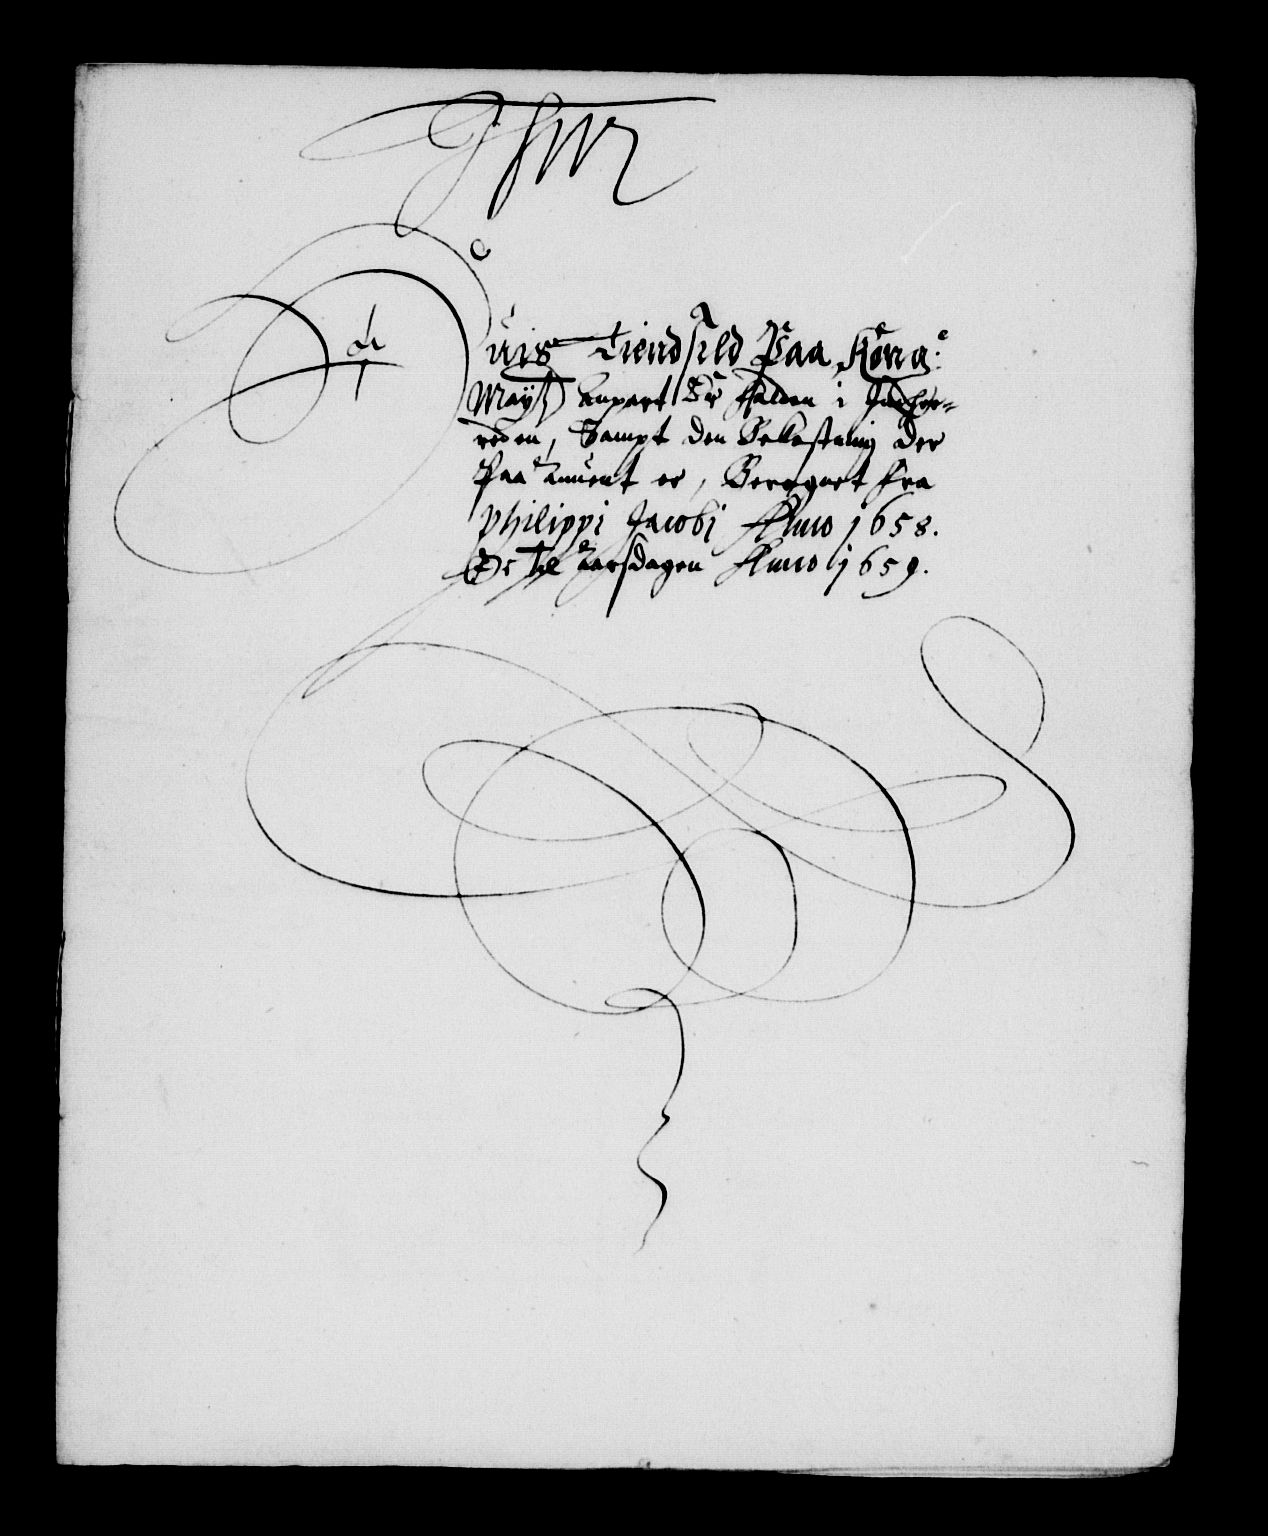 Huis Tiendsild Paa Kong:
Mayst Anpart Er falden i Indher-
reden, Sampt den Bekostning der
Paa Anuent er, Beregnet fra
Philippi Jacobi Anno 1658.
Oc Til Aarsdagen Anno 1659.